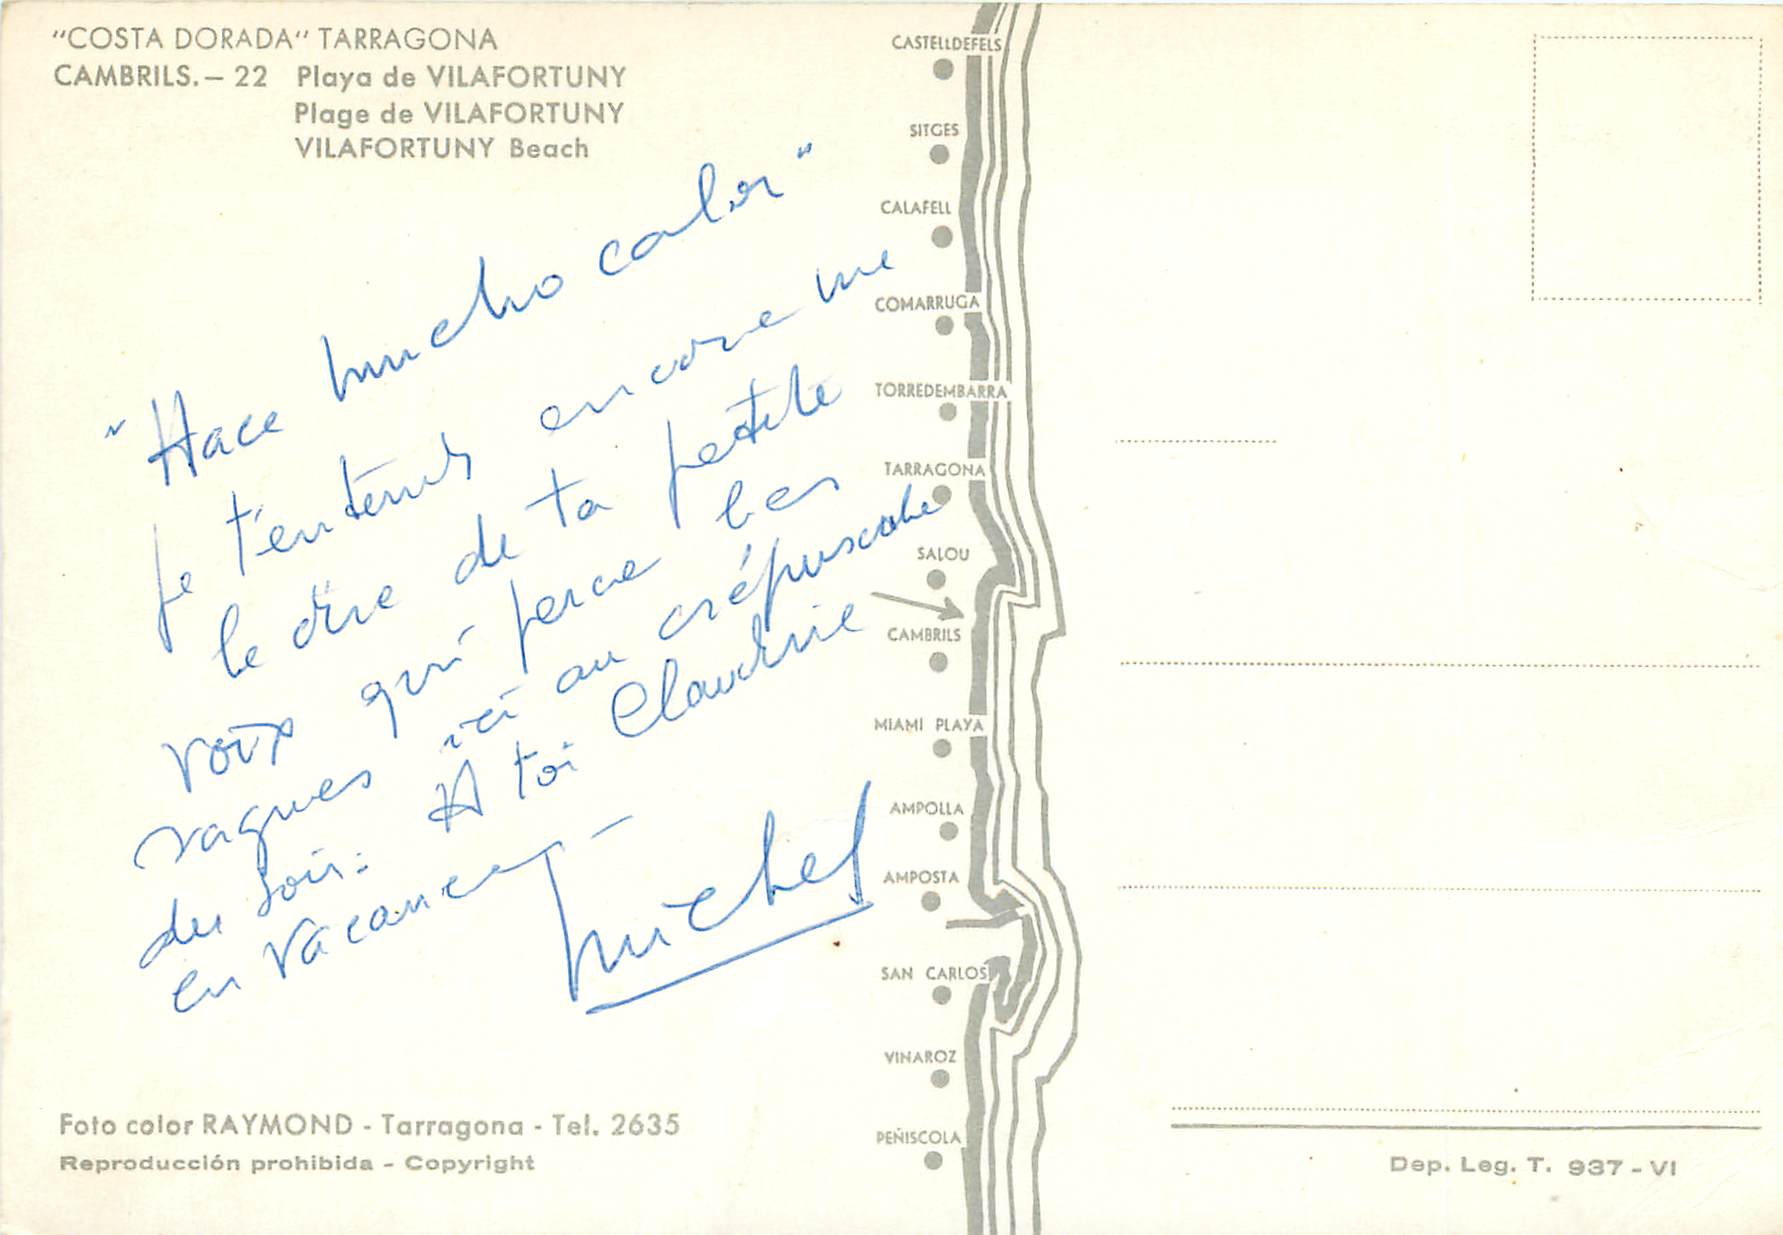 "COSTA DORADA" TARRAGONA
CAMBRILS. – 22 Playa de VILAFORTUNY
Plage de VILAFORTUNY
VILAFORTUNY Beach
"Hace mucho calor"
je t'entends encore me
le dire de ta petite
voix qui perce les
vagues ici au crépuscule
du soir. A toi Claudine
en vacances –
Michel
Foto color RAYMOND - Tarragona - Tel. 2635
Reproducción prohibida - Copyright
CASTELLDEFELS
SITGES
CALAFELL
COMARRUGA
TORREDEMBARRA
TARRAGONA
SALOU
CAMBRILS
MIAMI PLAYA
AMPOLLA
AMPOSTA
SAN CARLOS
VINAROZ
PEÑISCOLA
Dep. Leg. T. 937 - VI